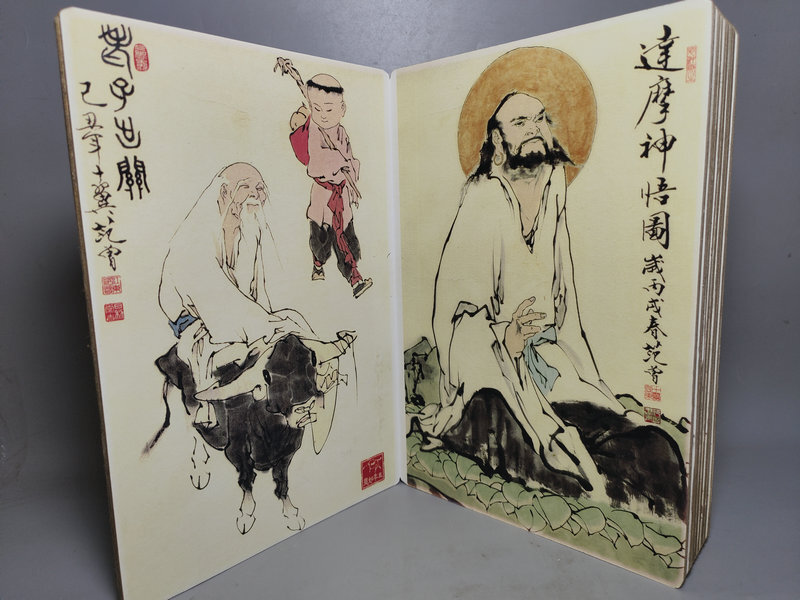 老子出關
己丑年十翼范曾
達摩神悟圖
歲丙戌春范曾